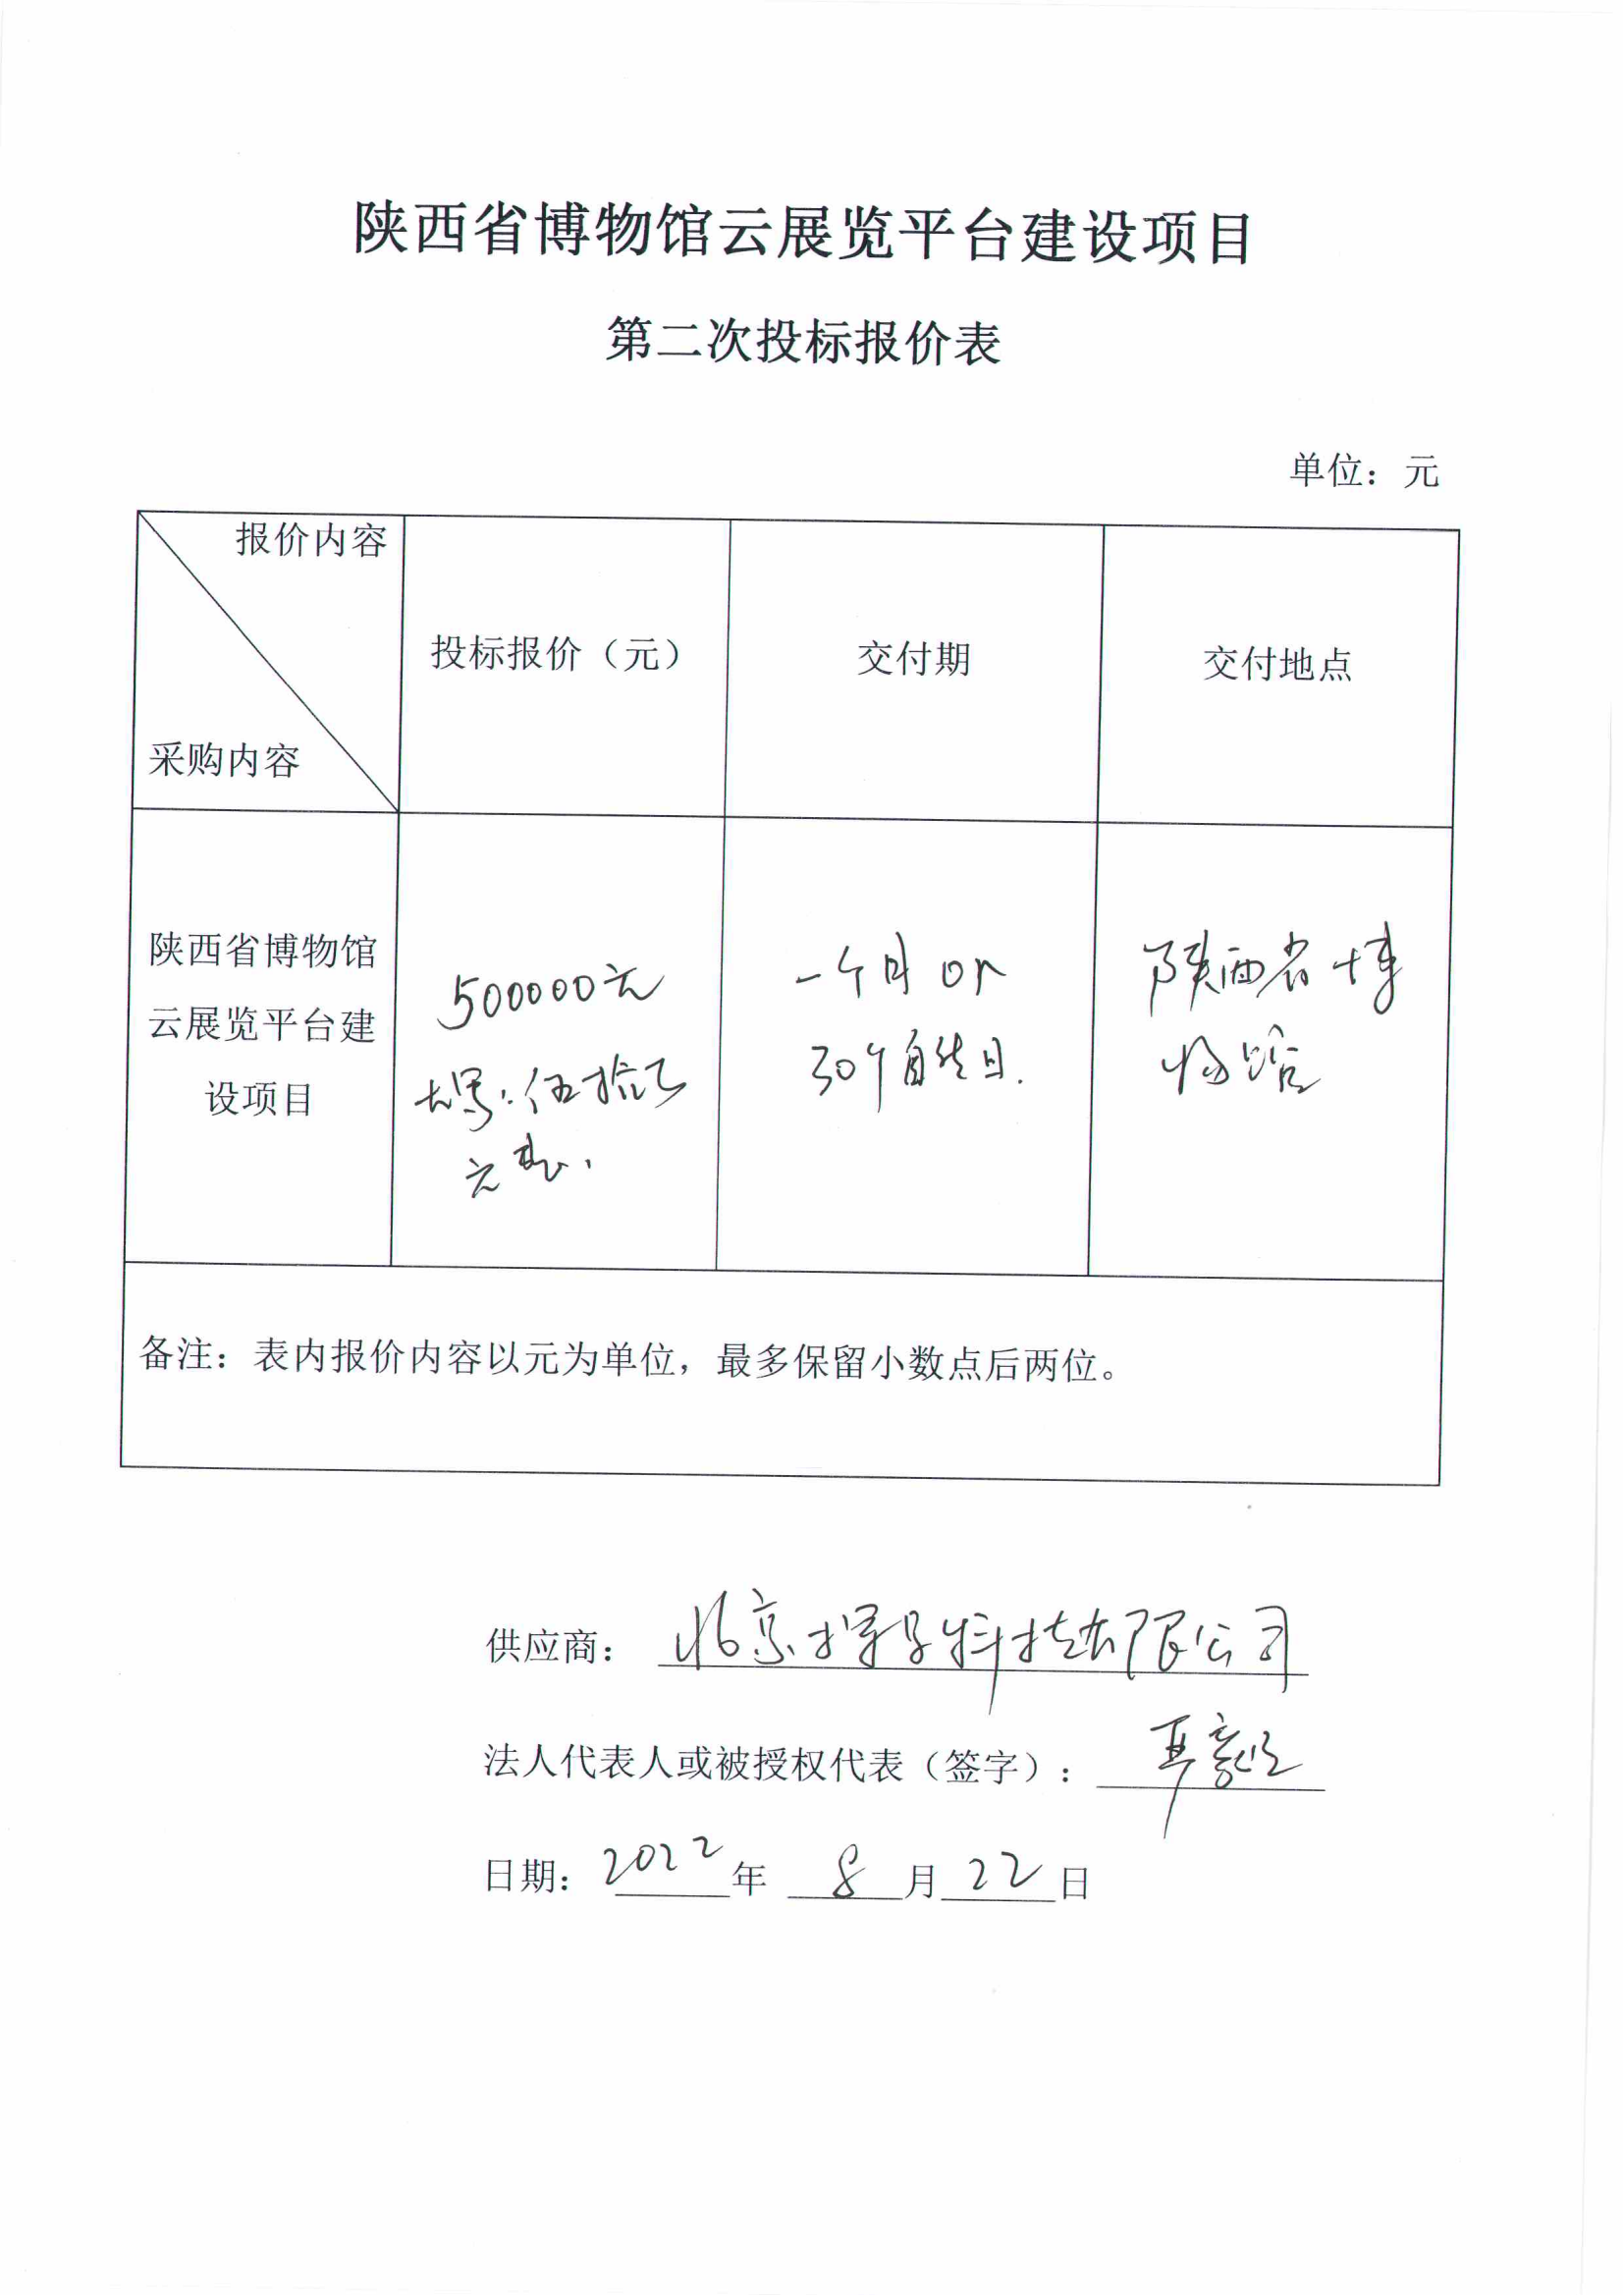 陕西省博物馆云展览平台建设项目
第二次投标报价表
单位：元
报价内容
采购内容
投标报价（元）
交付期
交付地点
陕西省博物馆
云展览平台建
设项目
500000元
大写：伍拾万
元整.
一个月
30个自然日.
陕西省博
物馆
备注：表内报价内容以元为单位，最多保留小数点后两位。
供应商：北京 科技有限公司
法人代表人或被授权代表（签字）：
日期：2022年 8月22日